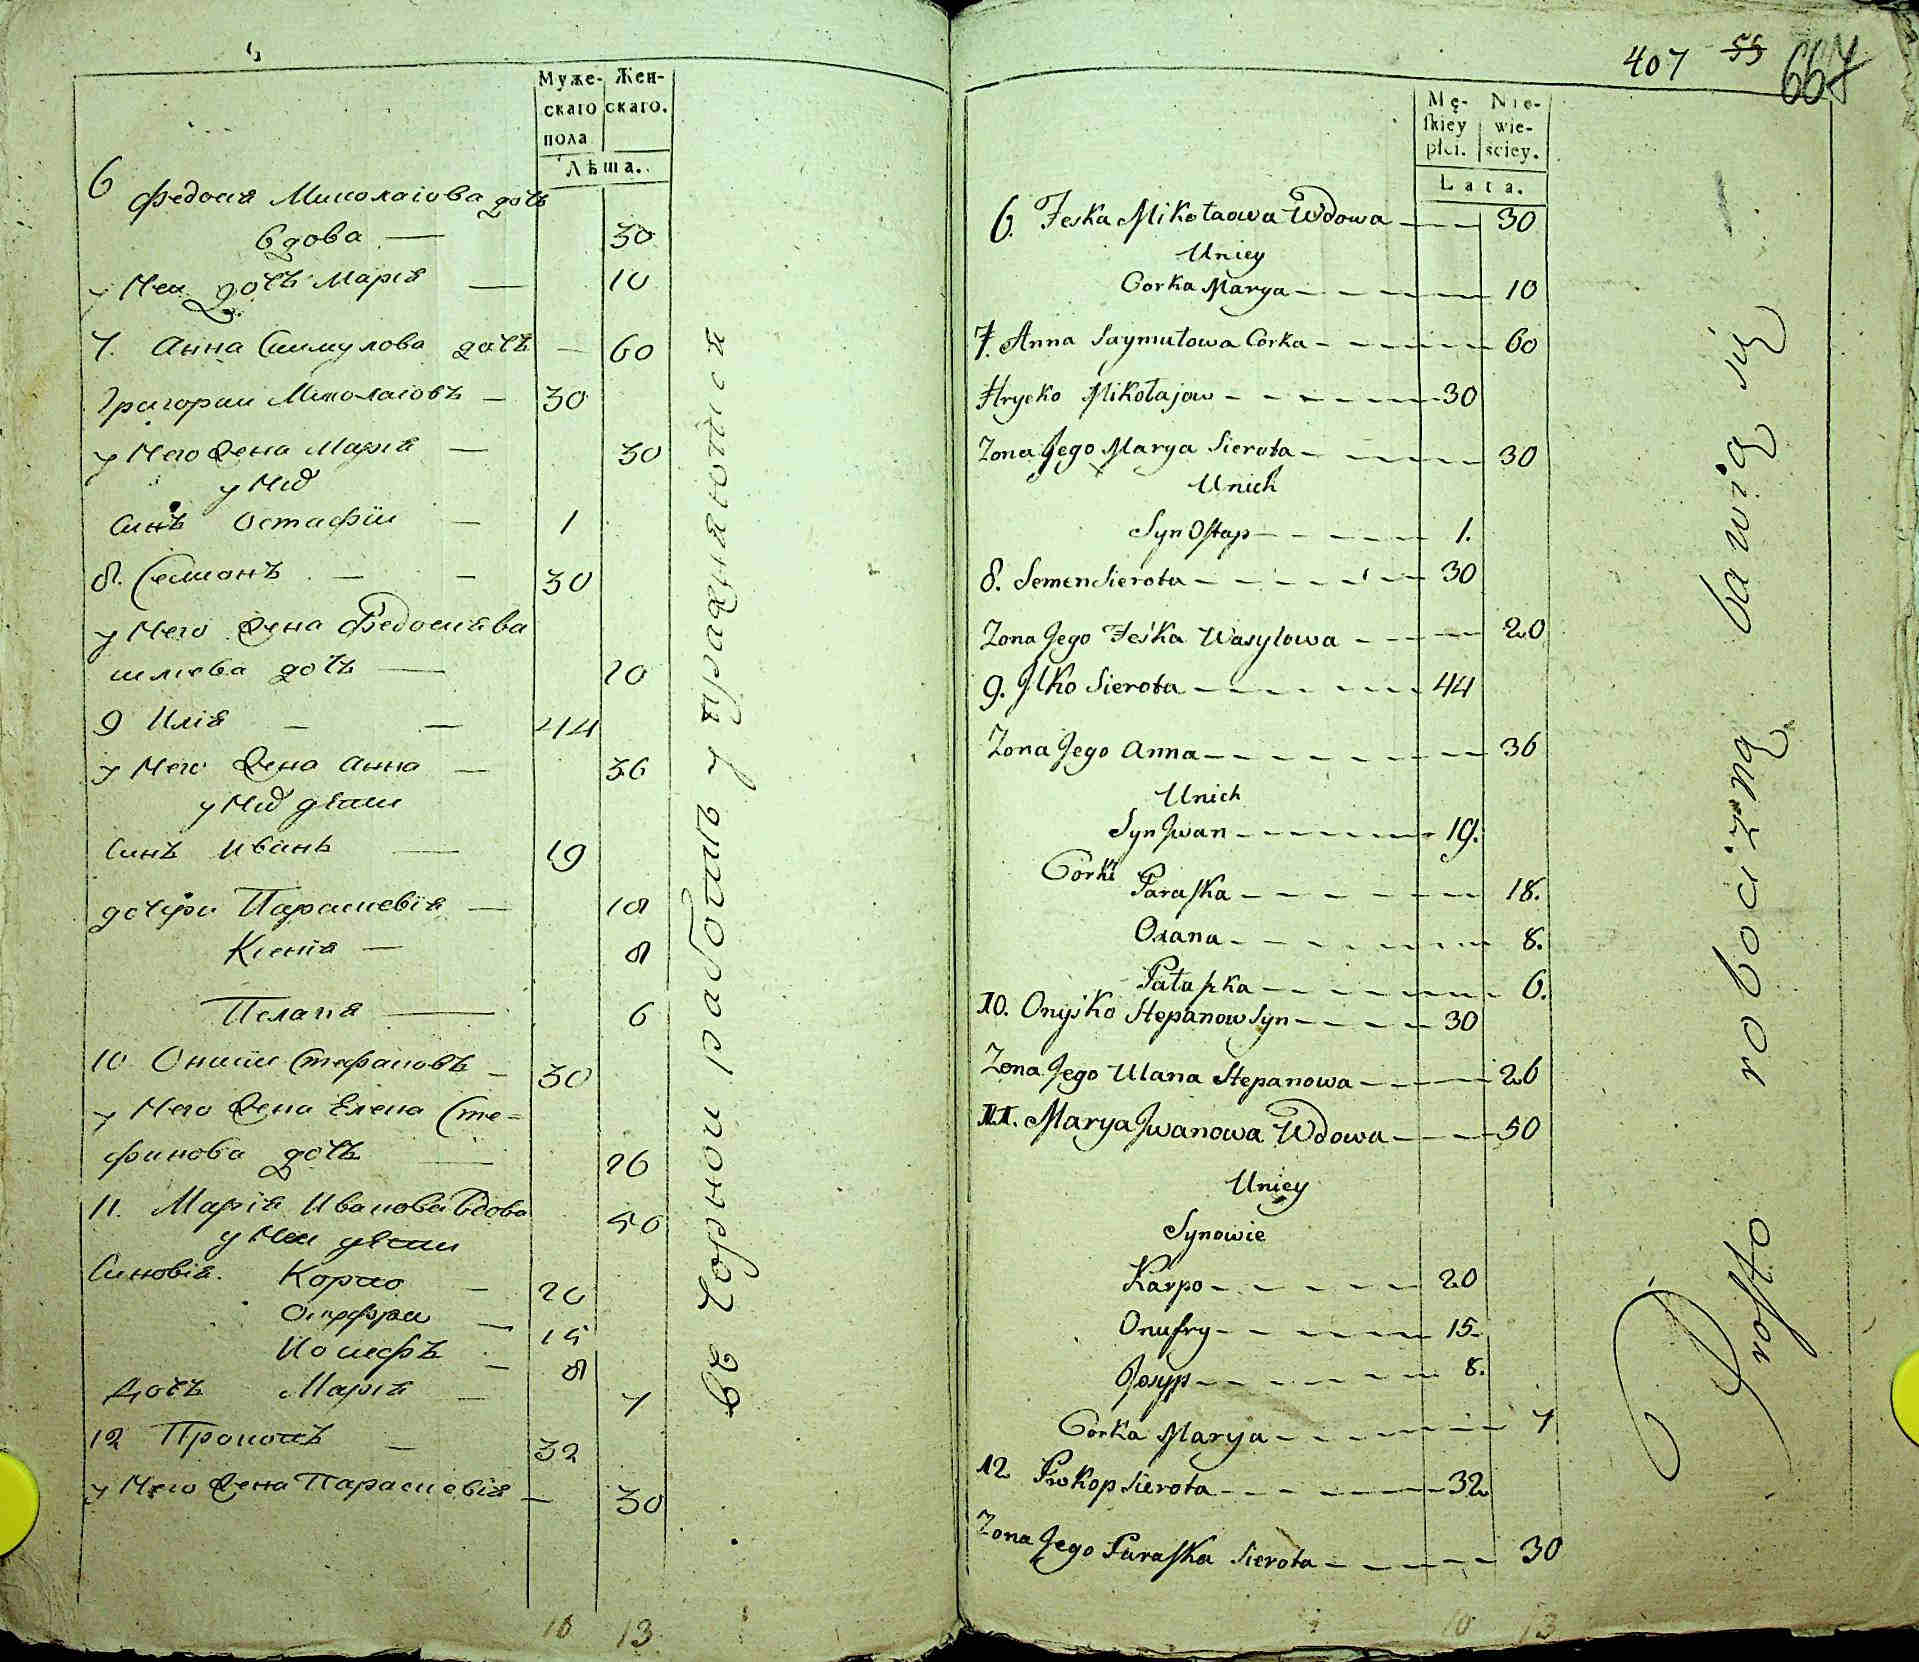 Муже- Жен-
скаго скаго.
пола
Лѣта.
6 Федосия Миколаiова дочь
вдова — 30
у Неи дочь Марiя — 10
7. Анна Симулова дочь — 60
Григории Миколаiовъ — 30
у Него Жена Марiя — 30
у Них
Синъ Остафiи — 1
8. Семионъ — — 30
у Него Жена Федосия Ва
силева дочь — 20
9 Илiя — — 44
у Него Жена Анна — 36
у Них дѣти
Синъ Иванъ — 19
дочери Параскевiя — 18
Ксенiя — 8
Пелагiя — 6
10 Онисим Стефановъ — 30
у Него Жена Елена Сте-
фанова дочь — 26
11. Марiя Иванова Вдова 50
у Неи дѣти
Синовiя. Корпо — 20
Онуфри — 15
Иосифъ — 8
Дочь Марiя — 7
12 Прокопъ — 32
у Него Жена Параскевiя — 30
10 13
въ Чорнои работѣ упражняются
407 55 667
Mę- Nie-
ſkiey wie-
płci. sciey.
Lata.
6. Feska Mikołaowa Wdowa — 30
Uniey
Corka Marya — 10
7. Anna Saymułowa Corka — 60
Hrycko Mikołajow — 30
Zona Jego Marya Sierota — 30
Unich
Syn Oſtap — 1.
8. Semen Sierota — 30
Zona Jego Feśka Wasylowa — 20
9. Jlko Sierota — 44
Zona Jego Anna — 36
Unich
Syn Jwan — 19.
Corki Paraſka — 18.
Oxana — 8.
Pałaſzka — 6.
10. Onyśko Stepanow Syn — 30
Zona Jego Ulana Stepanowa — 26
11. Marya Jwanowa Wdowa — 50
Uniey
Synowie
Karpo — 20
Onufry — 15.
Josyp — 8.
Corka Marya — 7
12 Prokop Sierota — 32
Zona Jego Paraſka Sierota — 30
10 13
Proſto robocizną bawią się